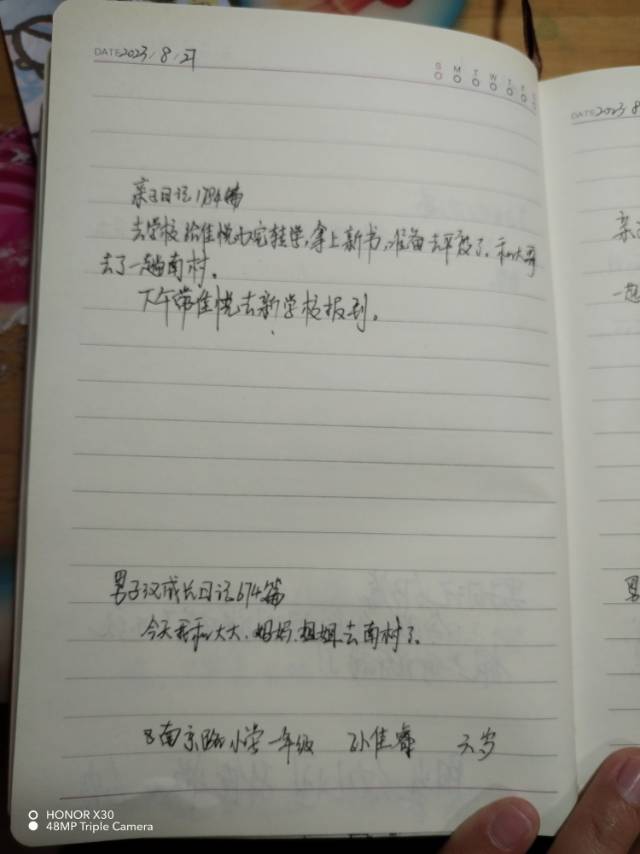 DATE 2023/8/27
S M T W T F
DATE 2023 8
亲子日记1784篇
去学校给佳悦办完转学,拿上新书,准备去平度了,和大哥
去了一趟南村。
下午带佳悦去新学校报到。
男子汉成长日记674篇
今天我和大大、妈妈、姐姐去南村了。
南京路小学一年级 孙佳睿 六岁
亲
一趟
男
HONOR X30
48MP Triple Camera